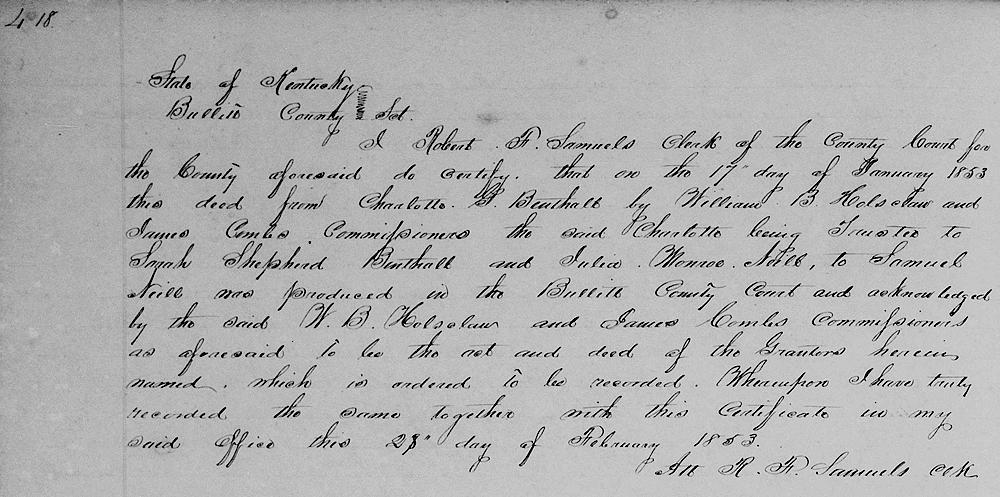 418.
State of Kentucky
Bullitt County Sct.
I Robert F. Samuels Clerk of the County Court for
the County aforesaid do certify. that on the 17" day of January 1853
this deed from Charlotte. T. Benthall by William B. Holsclaw and
James Combs Commissioners the said Charlotte being Trustee to
Sarah Shepherd Benthall and Julia. Monroe. Neill, to Samuel
Neill was produced in the Bullitt County Court and acknowledged
by the said W. B. Holsclaw and James Combs Commissioners
as aforesaid to be the act and deed of the Grantors herein
named. which is ordered to be recorded. Whereupon I have truly
recorded the same together with this Certificate in my
said office this 28" day of February 1853.
Att R. F. Samuels Clk